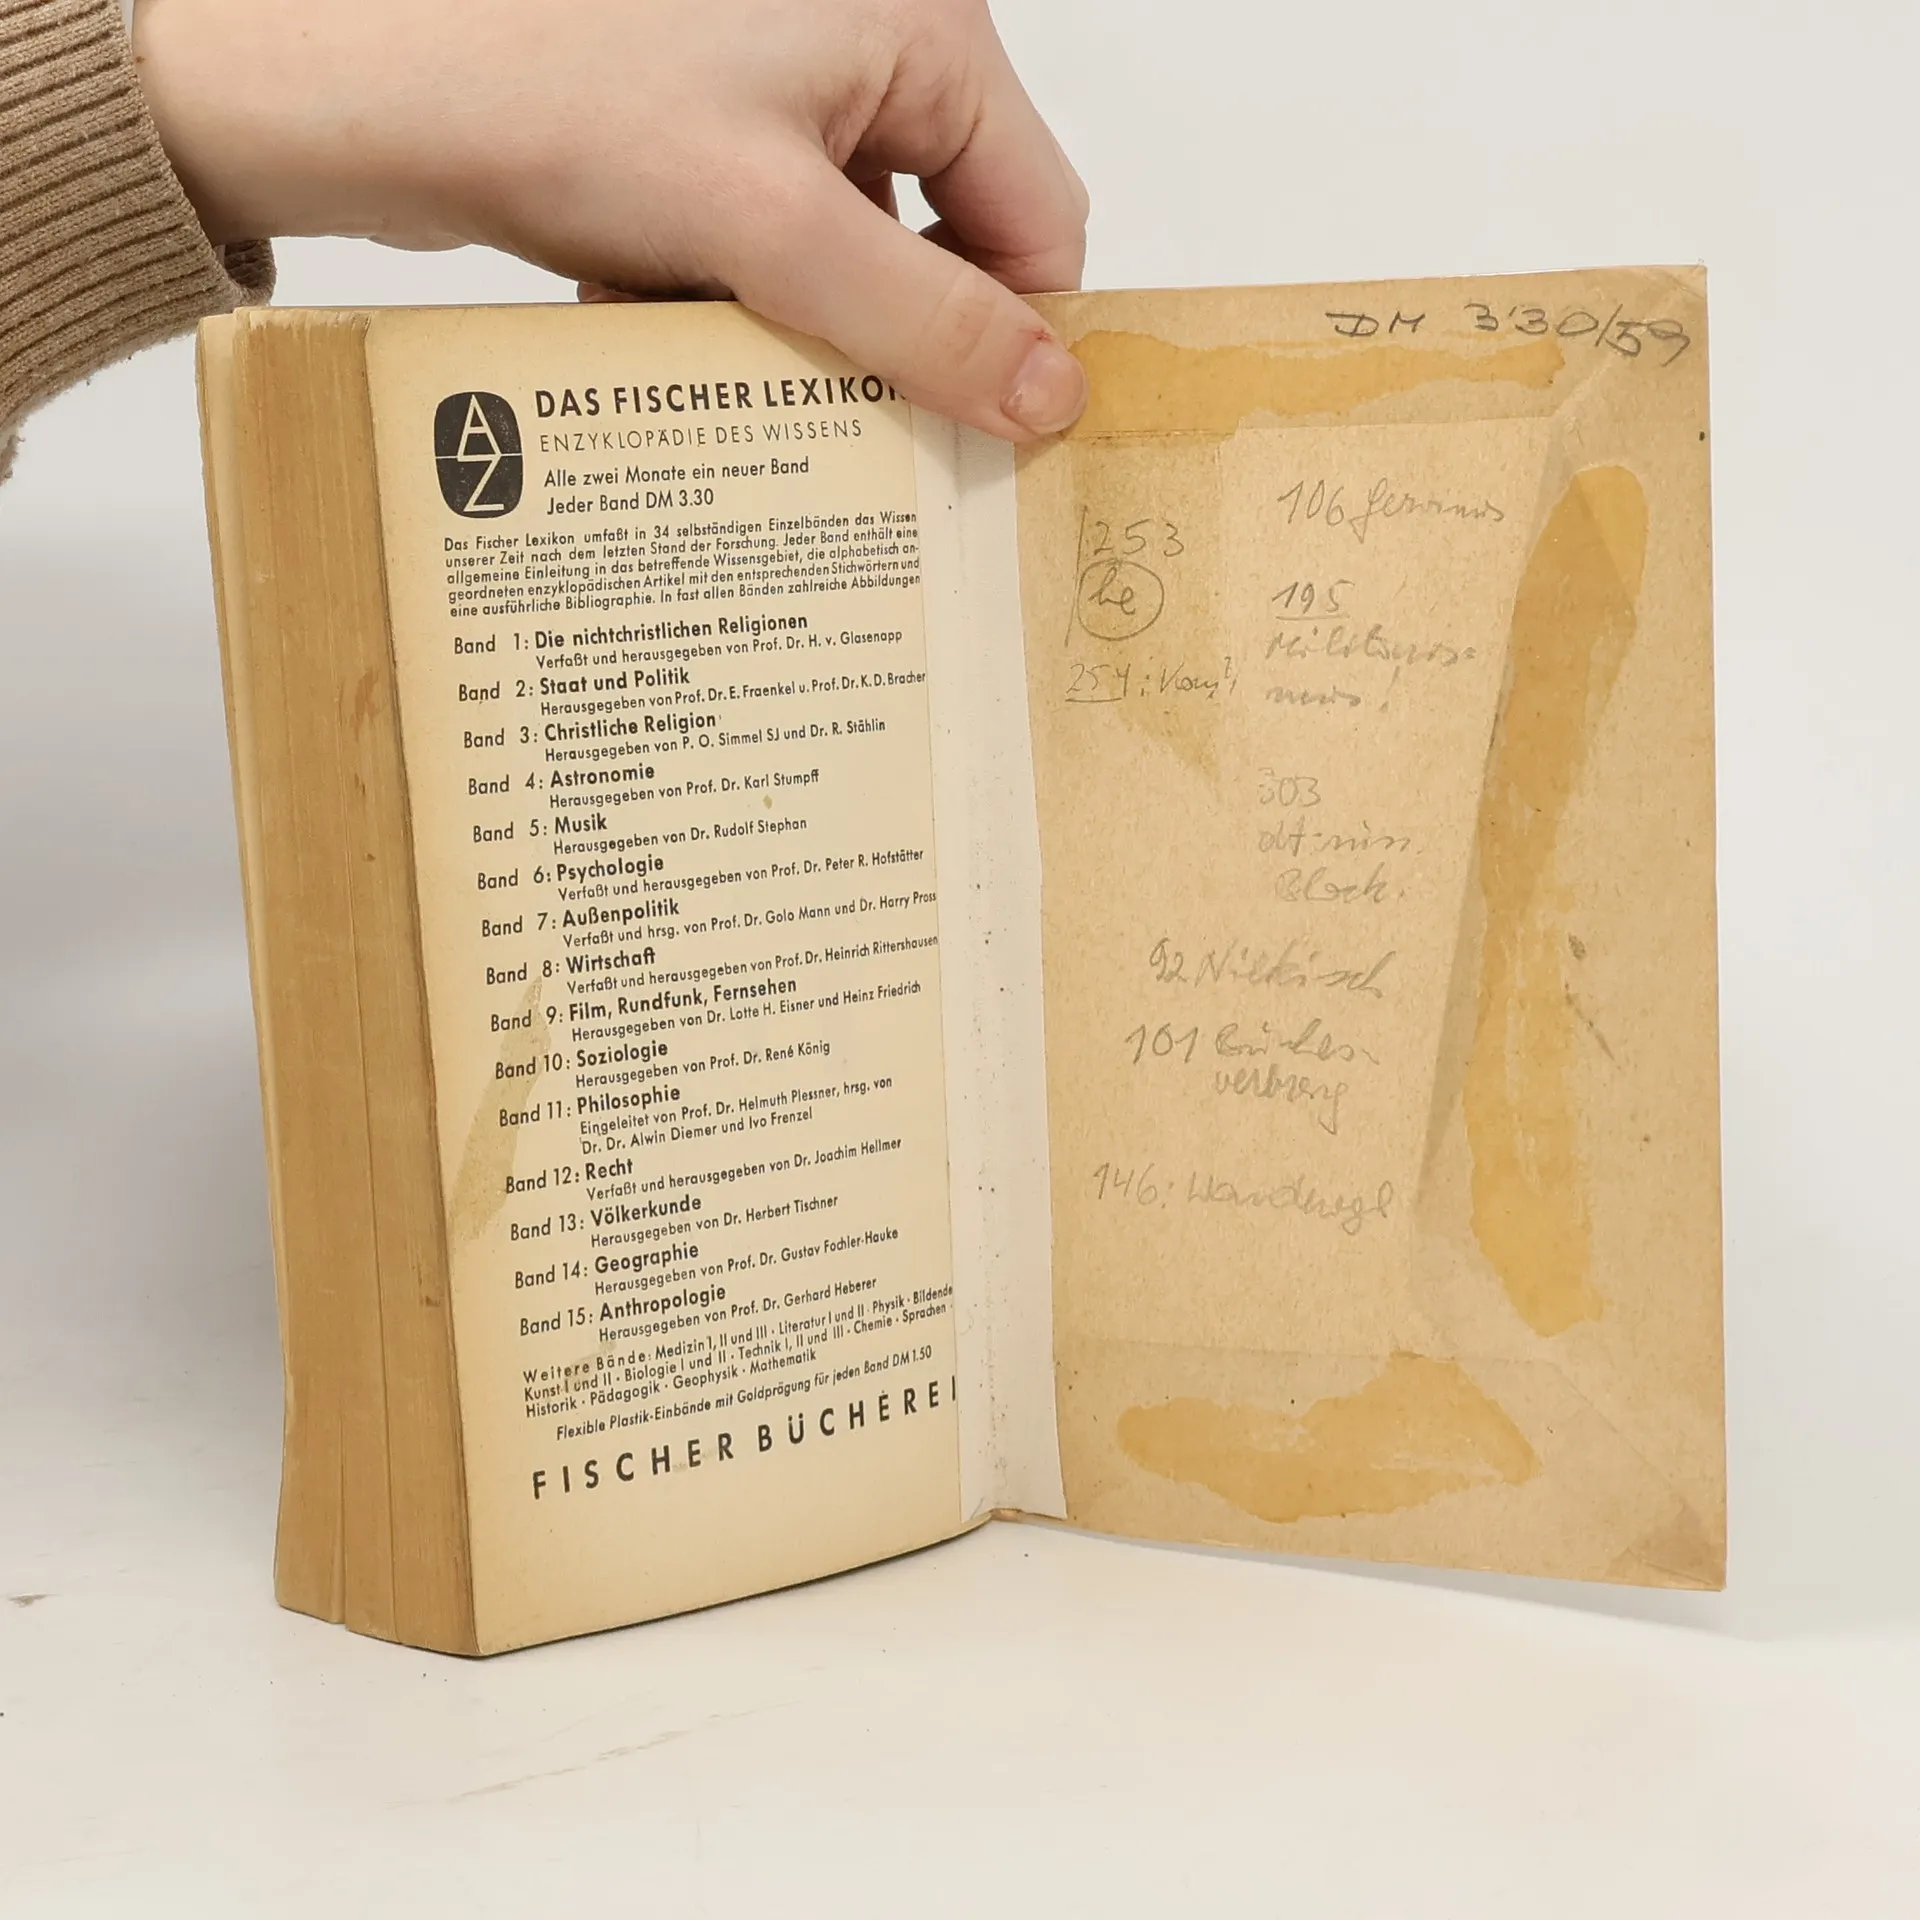 A
Z
DAS FISCHER LEXIKON
ENZYKLOPÄDIE DES WISSENS
Alle zwei Monate ein neuer Band
Jeder Band DM 3.30
Das Fischer Lexikon umfaßt in 34 selbständigen Einzelbänden das Wissen
unserer Zeit nach dem letzten Stand der Forschung. Jeder Band enthält eine
allgemeine Einleitung in das betreffende Wissensgebiet, die alphabetisch an-
geordneten enzyklopädischen Artikel mit den entsprechenden Stichwörtern und
eine ausführliche Bibliographie. In fast allen Bänden zahlreiche Abbildungen
Band 1: Die nichtchristlichen Religionen
Verfaßt und herausgegeben von Prof. Dr. H. v. Glasenapp
Band 2: Staat und Politik
Herausgegeben von Prof. Dr. E. Fraenkel u. Prof. Dr. K. D. Bracher
Band 3: Christliche Religion
Herausgegeben von P. O. Simmel SJ und Dr. R. Stählin
Band 4: Astronomie
Herausgegeben von Prof. Dr. Karl Stumpff
Band 5: Musik
Herausgegeben von Dr. Rudolf Stephan
Band 6: Psychologie
Verfaßt und herausgegeben von Prof. Dr. Peter R. Hofstätter
Band 7: Außenpolitik
Verfaßt und hrsg. von Prof. Dr. Golo Mann und Dr. Harry Pross
Band 8: Wirtschaft
Verfaßt und herausgegeben von Prof. Dr. Heinrich Rittershausen
Band 9: Film, Rundfunk, Fernsehen
Herausgegeben von Dr. Lotte H. Eisner und Heinz Friedrich
Band 10: Soziologie
Herausgegeben von Prof. Dr. René König
Band 11: Philosophie
Eingeleitet von Prof. Dr. Helmuth Plessner, hrsg. von
Dr. Dr. Alwin Diemer und Ivo Frenzel
Band 12: Recht
Verfaßt und herausgegeben von Dr. Joachim Hellmer
Band 13: Völkerkunde
Herausgegeben von Dr. Herbert Tischner
Band 14: Geographie
Herausgegeben von Prof. Dr. Gustav Fochler-Hauke
Band 15: Anthropologie
Herausgegeben von Prof. Dr. Gerhard Heberer
Weitere Bände: Medizin I, II und III · Literatur I und II · Physik · Bildende
Kunst I und II · Biologie I und II · Technik I, II und III · Chemie · Sprachen ·
Historik · Pädagogik · Geophysik · Mathematik
Flexible Plastik-Einbände mit Goldprägung für jeden Band DM 1.50
FISCHER BÜCHEREI
DM 3'30/59
106 Gervinus
253
195
Militaris-
mus!
254:
303
Block.
92 Niekisch
101 Bücher-
verbreng
146: Wandervgl